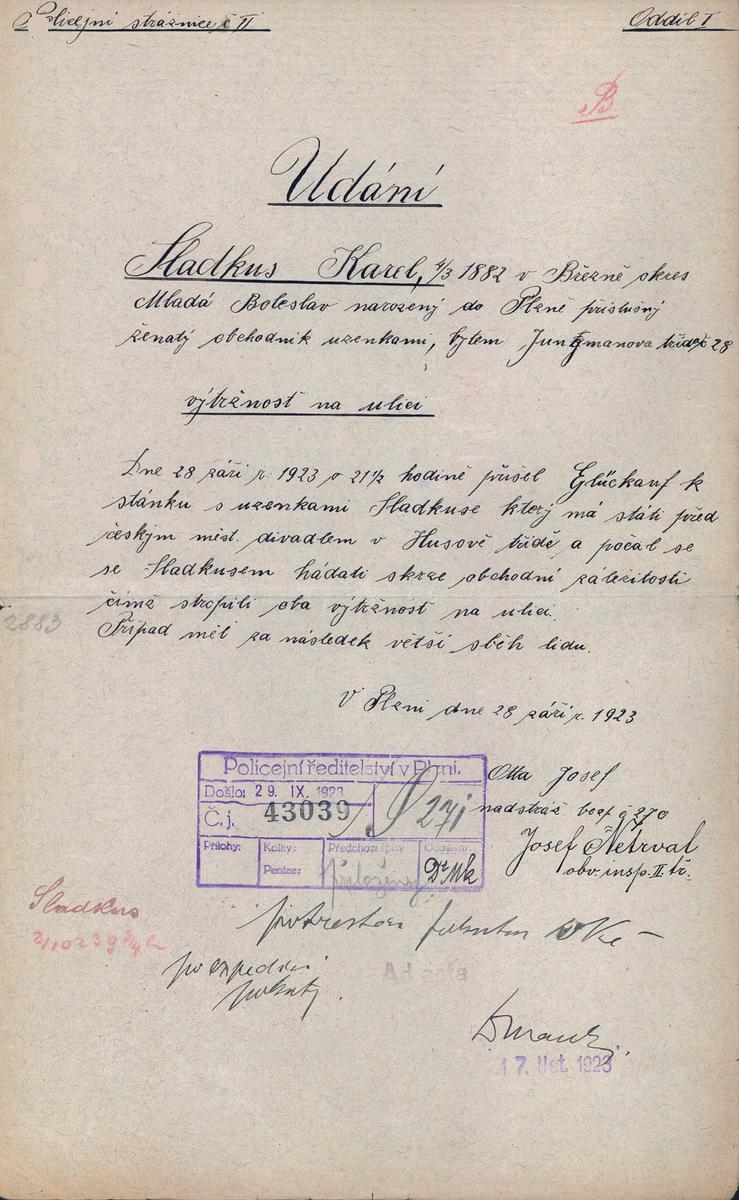 Policejní strážnice č II
Oddíl I
B
Udání
Sladkus Karel, 4/3 1882 v Březně okres
Mladá Boleslav narozený do Plzně příslušný
ženatý obchodník uzenkami, bytem Jungmanova třída č 28
výtržnost na ulici
Dne 28 září r. 1923 o 21½ hodině přišel Glückauf k
stánku s uzenkami Sladkuse který má státi před
českým měst. divadlem v Husově třídě a počal se
se Sladkusem hádati skrze obchodní záležitosti
čímž stropili oba výtržnost na ulici.
Případ měl za následek větší sběh lidu.
2883
V Plzni dne 28 září r. 1923
Policejní ředitelství v Plzni.
Došlo: 29. IX. 1923
Č. j. 43039
271
Přílohy:
Kolky:
Peníze:
Předchozí spisy
Odděleni
Otta Josef
nadstráž. č 270
Josef Netrval
obv. insp. II. tř.
Sladkus
potrestán pokutou 5 Kč –
po expedici
pokuty.
Ad acta
17. List. 1923